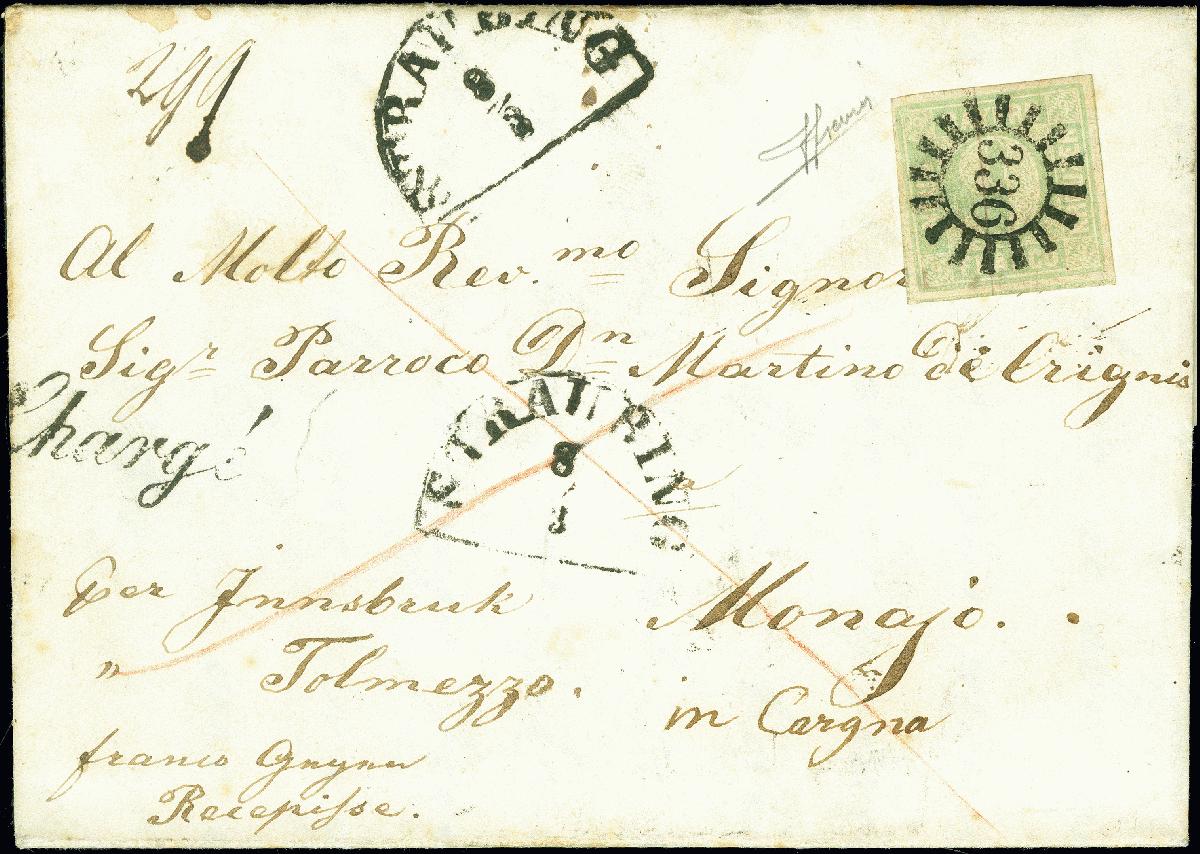 299
STRAUBING
8
336
Al Molto Rev.mo Signor
Sigr Parroco Dn Martino De Crignis
Chargé
STRAUBING
8
1
a
per Innsbruk
Monajo.
" Tolmezzo.
in Cargna
franco Gegen
Recepisse.